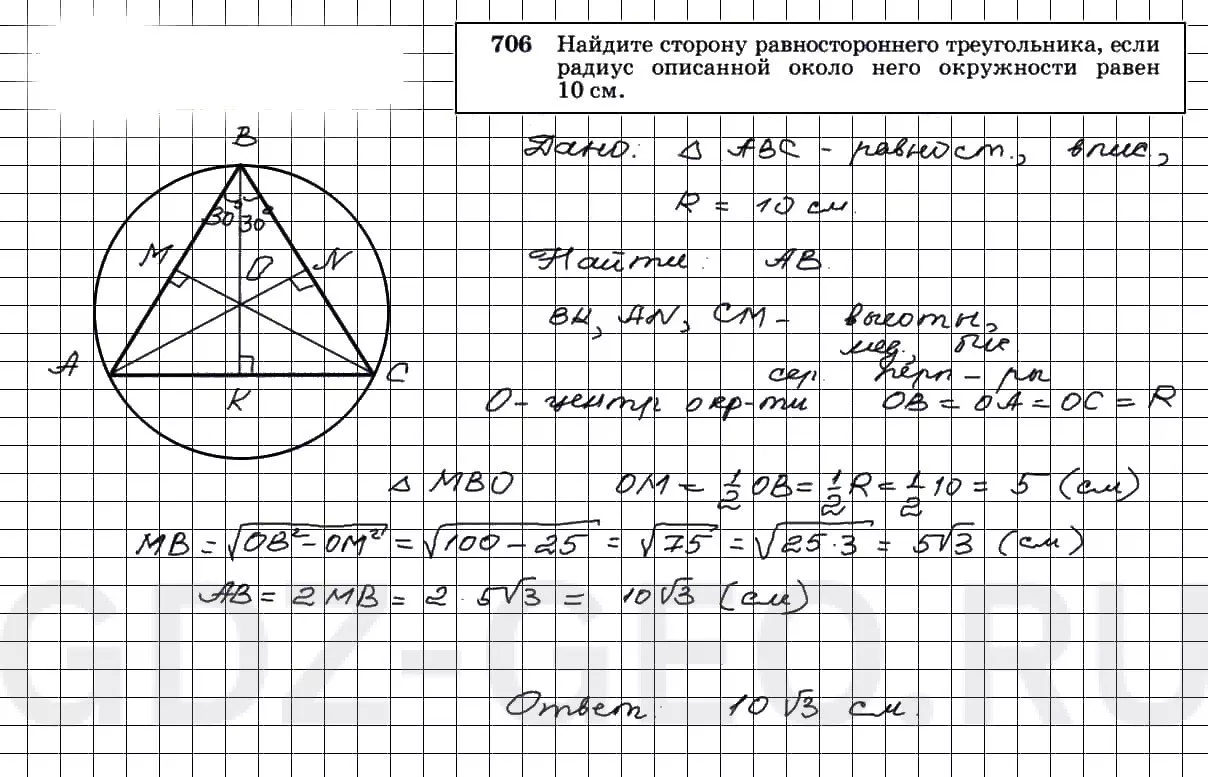 706 Найдите сторону равностороннего треугольника, если
радиус описанной около него окружности равен
10 см.
B
30° 30°
M
O
N
A
C
K
Дано: △ ABC - равност., впис.,
R = 10 см.
Найти: AB.
BK, AN, CM - высоты,
мед., бис.
сер. перп-ры
O - центр окр-ти OB = OA = OC = R
△ MBO OM = 1/2 OB = 1/2 R = 1/2 10 = 5 (см)
MB = √OB² - OM² = √100 - 25 = √75 = √25·3 = 5√3 (см)
AB = 2 MB = 2 · 5√3 = 10√3 (см)
Ответ: 10√3 см.
GDZ-GEO.RU